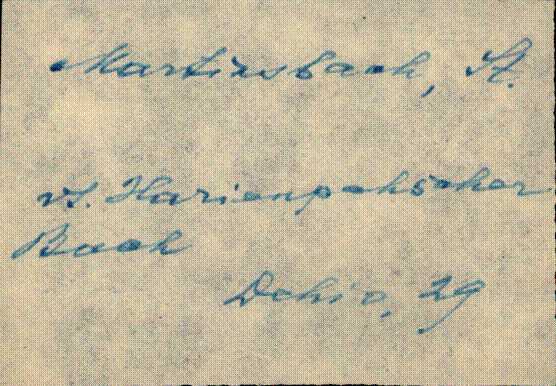 Martinsbach, St.
vs. Karienpehscher
Bach
Dehio, 29